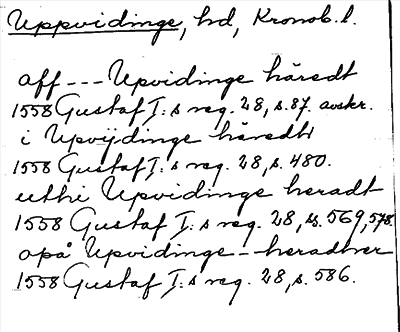 Uppvidinge, hd, Kronob. l.
aff --- Upvidinge häredt
1558 Gustaf I:s reg. 28, s. 87. avskr.
i Upvijdinge häredt
1558 Gustaf I:s reg. 28, s. 480.
uthi Upvidinge heradt
1558 Gustaf I:s reg. 28, ss. 569, 578.
opå Upvidinge -- heradher
1558 Gustaf I:s reg. 28, s. 586.